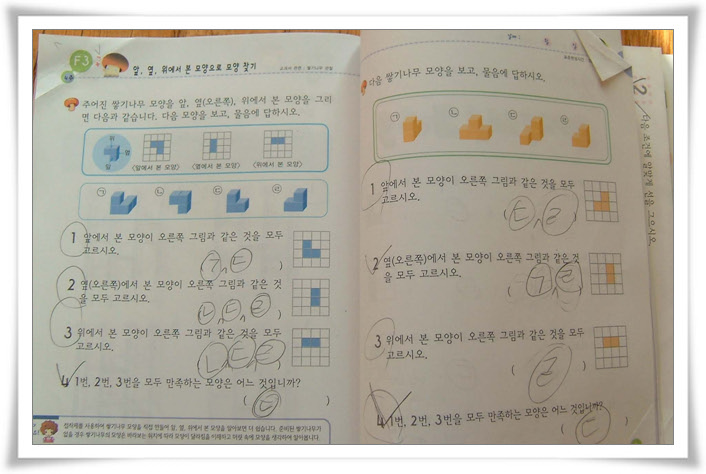 F3
앞, 옆, 위에서 본 모양으로 모양 찾기
주어진 쌓기나무 모양을 앞, 옆(오른쪽), 위에서 본 모양을 그리
면 다음과 같습니다. 다음 모양을 보고, 물음에 답하시오.
위
옆
앞
<앞에서 본 모양>
<옆에서 본 모양>
<위에서 본 모양>
㉠ ㉡ ㉢ ㉣
1 앞에서 본 모양이 오른쪽 그림과 같은 것을 모두
고르시오.
( ㄱ, ㄷ )
2 옆(오른쪽)에서 본 모양이 오른쪽 그림과 같은 것
을 모두 고르시오.
( ㄴ ㄷ ㄹ )
3 위에서 본 모양이 오른쪽 그림과 같은 것을 모두
고르시오.
( ㄴ, ㄷ, ㄹ )
4 1번, 2번, 3번을 모두 만족하는 모양은 어느 것입니까?
( ㄷ )
다음 쌓기나무 모양을 보고, 물음에 답하시오.
㉠ ㉡ ㉢ ㉣
1 앞에서 본 모양이 오른쪽 그림과 같은 것을 모두
고르시오.
( ㄷ, ㄹ )
2 옆(오른쪽)에서 본 모양이 오른쪽 그림과 같은 것
을 모두 고르시오.
( ㄱ, ㄹ )
3 위에서 본 모양이 오른쪽 그림과 같은 것을 모두
고르시오.
( ㄹ )
4 1번, 2번, 3번을 모두 만족하는 모양은 어느 것입니까?
( ㄷ )
2
다음 조건에 알맞게 선을 그으시오.